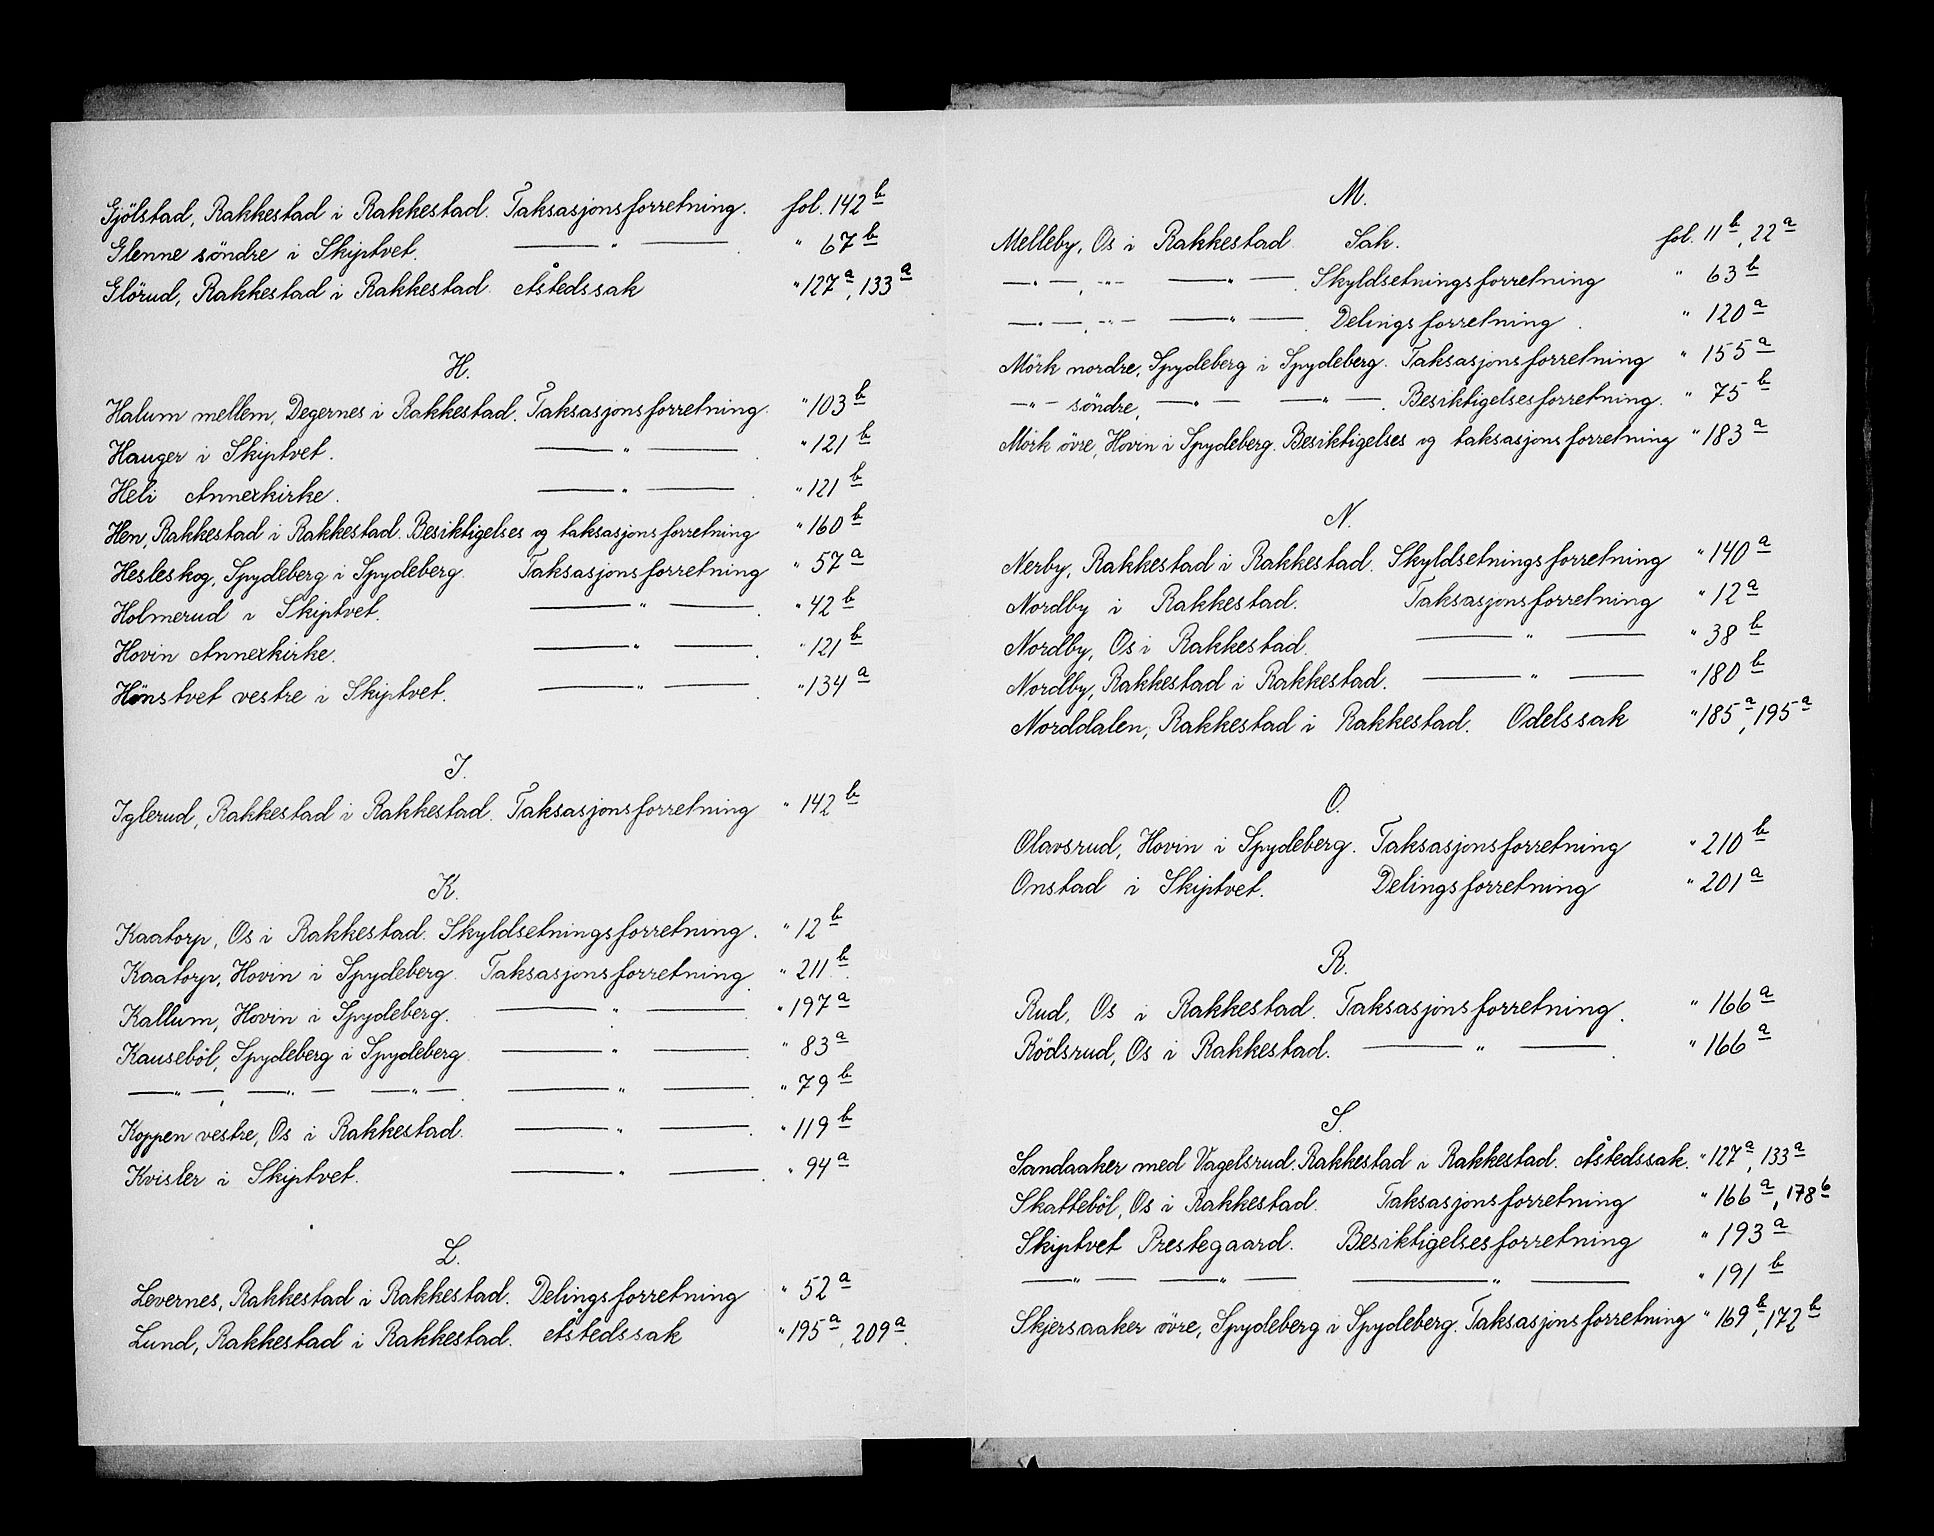 Gjölstad, Rakkestad i Rakkestad. Taksasjonsforretning. fol. 142 b
Glenne söndre i Skiptvet. — " — " 67 b
Glörud, Rakkestad i Rakkestad. Åstedssak " 127 a, 133 a
H.
Halum mellem, Degernes i Rakkestad. Taksasjonsforretning. " 103 b
Hauger i Skiptvet. — " — . " 121 b
Heli Annexkirke. — " — . " 121 b
Hen, Rakkestad i Rakkestad. Besiktigelses og taksasjonsforretning " 160 b
Hesleskog, Spydeberg i Spydeberg. Taksasjonsforretning " 57 a
Holmerud i Skiptvet. — " — . " 42 b
Hovin Annexkirke. — " — . " 121 b
Hönstvet vestre i Skiptvet. — " — . " 134 a
I.
Iglerud, Rakkestad i Rakkestad. Taksasjonsforretning " 142 b
K.
Kaatorp, Os i Rakkestad. Skyldsetningsforretning. " 12 b
Kaatorp, Hovin i Spydeberg. Taksasjonsforretning. " 211 b
Kallum, Hovin i Spydeberg. — " — " 197 a
Kauseböl, Spydeberg i Spydeberg. — " — . " 83 a
— " —, — " — — " — . — " — . " 79 b
Koppen vestre, Os i Rakkestad. — " — . " 119 b
Kvisler i Skiptvet. — " — . " 94 a
L.
Levernes, Rakkestad i Rakkestad. Delingsforretning " 52 a
Lund, Rakkestad i Rakkestad. Åstedssak " 195 a, 209 a.
M.
Melleby, Os i Rakkestad. Sak. fol. 11 b, 22 a
— " —, - " - — " — . Skyldsetningsforretning " 63 b
— " —, - " - — " — . Delingsforretning. " 120 a
Mörk nordre, Spydeberg i Spydeberg. Taksasjonsforretning " 155 a
— " — söndre, — " — — " — . Besiktigelsesforretning. " 75 b
Mörk övre, Hovin i Spydeberg. Besiktigelses og taksasjonsforretning " 183 a
N.
Nerby, Rakkestad i Rakkestad. Skyldsetningsforretning " 140 a
Nordby i Rakkestad. Taksasjonsforretning " 12 a
Nordby, Os i Rakkestad. — " — " 38 b
Nordby, Rakkestad i Rakkestad. — " — " 180 b
Norddalen, Rakkestad i Rakkestad. Odelssak " 185 a, 195 a
O.
Olavsrud, Hovin i Spydeberg. Taksasjonsforretning " 210 b
Onstad i Skiptvet. Delingsforretning " 201 a
R.
Rud, Os i Rakkestad. Taksasjonsforretning. " 166 a
Rödsrud, Os i Rakkestad. — " — . " 166 a
S.
Sandaaker med Vagelsrud. Rakkestad i Rakkestad. Åstedssak. " 127 a, 133 a
Skatteböl, Os i Rakkestad. Taksasjonsforretning " 166 a, 178 b
Skiptvet Prestegaard. Besiktigelsesforretning " 193 a
— " — — " — — " — " 191 b
Skjersaaker övre, Spydeberg i Spydeberg. Taksasjonsforretning " 169 b, 172 b